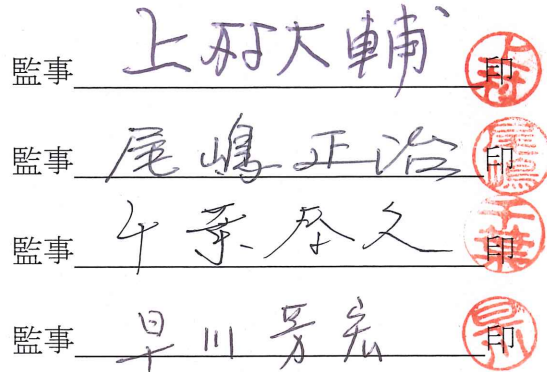 監事 上村大輔 印
監事 尾嶋正治 印
監事 千葉啓久 印
監事 早川芳宏 印